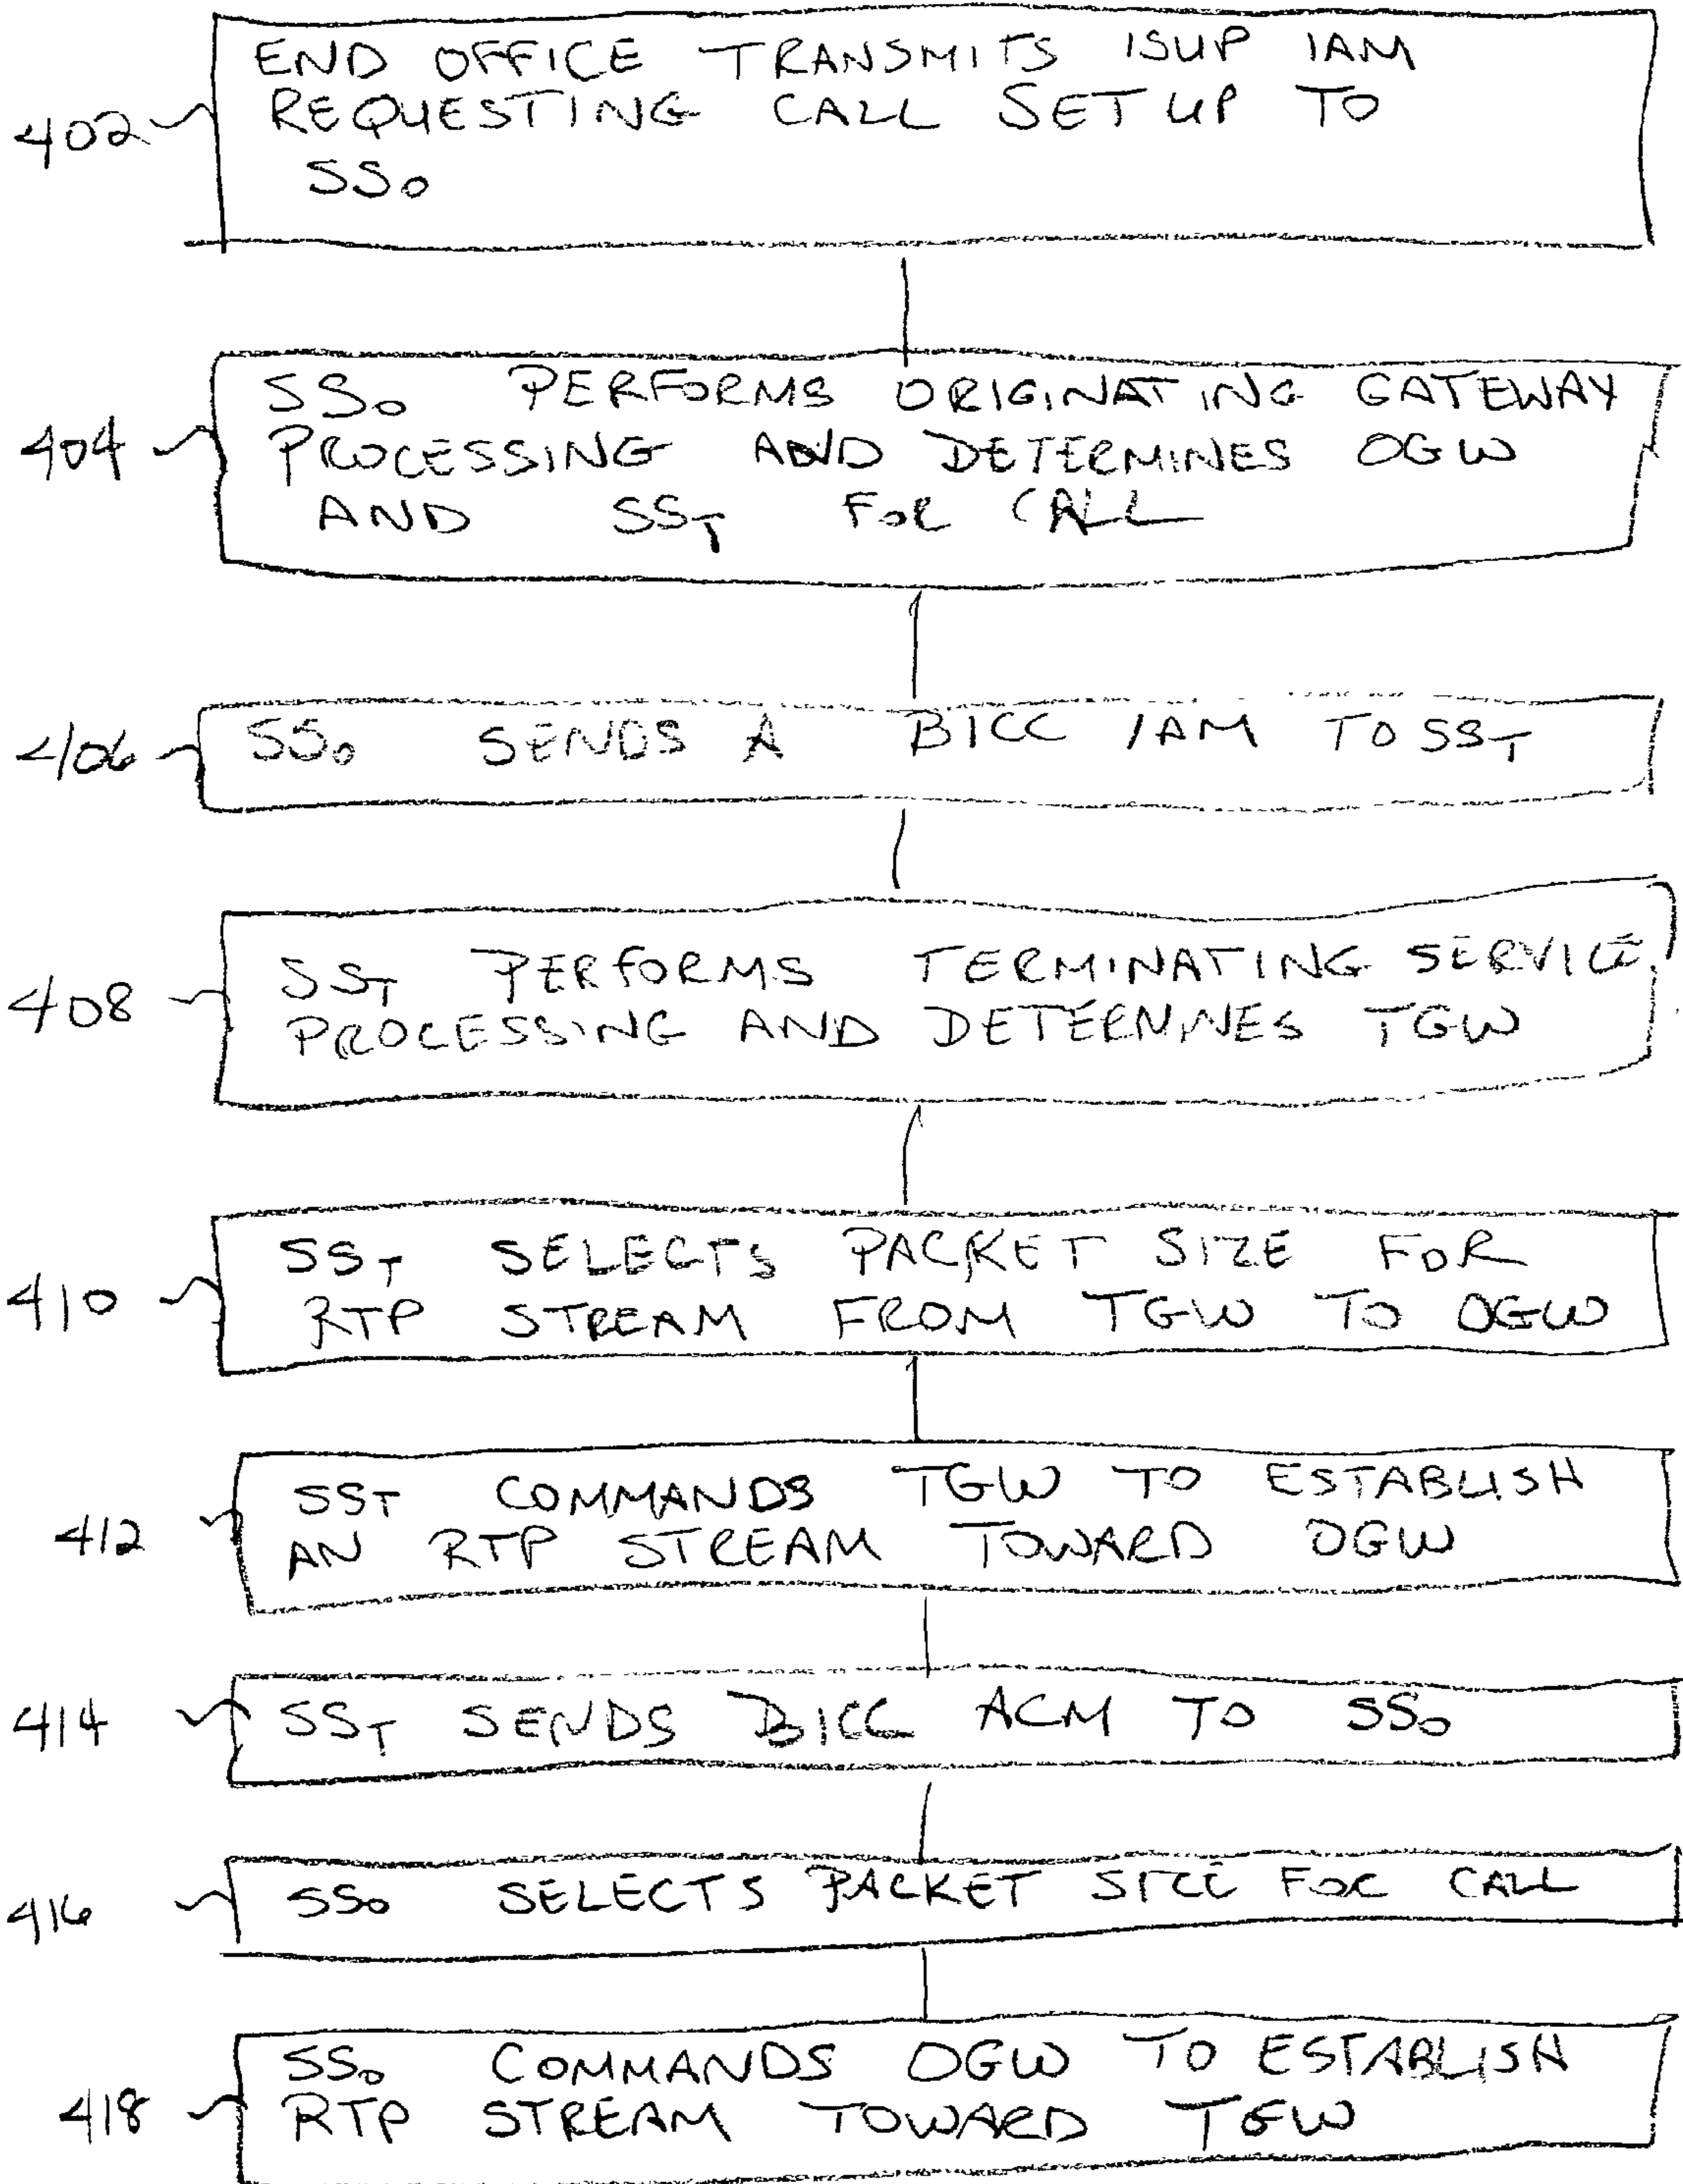 402
END OFFICE TRANSMITS ISUP IAM
REQUESTING CALL SET UP TO
SSo
404
SSo PERFORMS ORIGINATING GATEWAY
PROCESSING AND DETERMINES OGW
AND SST FOR CALL
406
SSo SENDS A BICC IAM TO SST
408
SST PERFORMS TERMINATING SERVICE
PROCESSING AND DETERMINES TGW
410
SST SELECTS PACKET SIZE FOR
RTP STREAM FROM TGW TO OGW
412
SST COMMANDS TGW TO ESTABLISH
AN RTP STREAM TOWARD OGW
414
SST SENDS BICC ACM TO SSo
416
SSo SELECTS PACKET SIZE FOR CALL
418
SSo COMMANDS OGW TO ESTABLISH
RTP STREAM TOWARD TGW